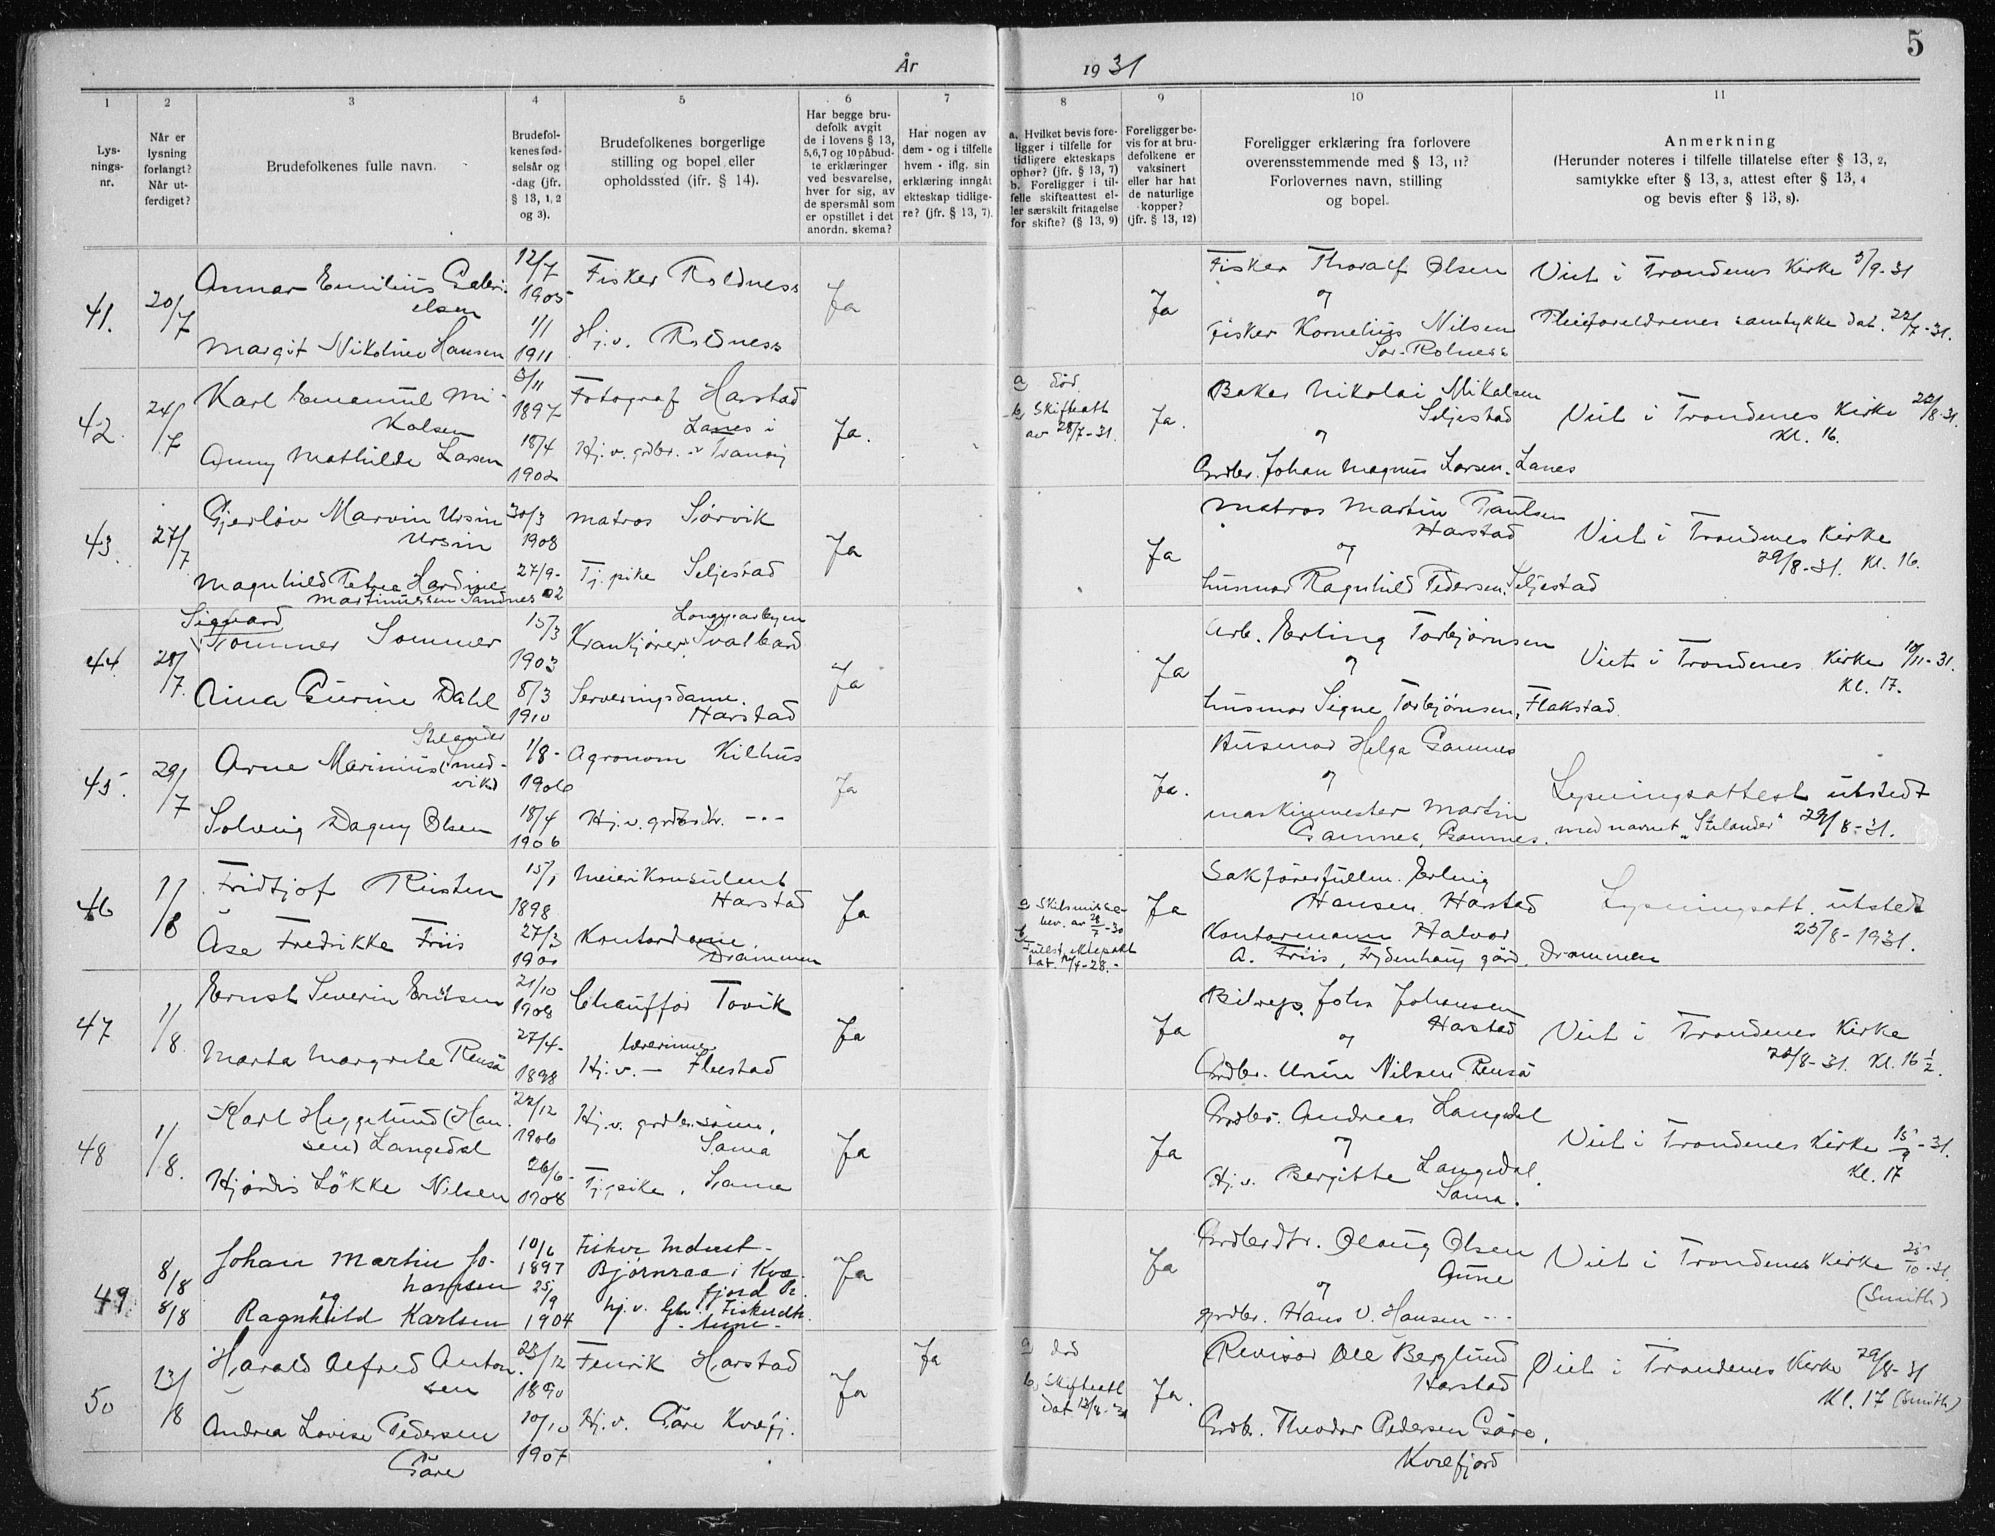 5
År 1931
1
2
3
4
5
6
7
8
9
10
11
Lys-
nings-
nr.
Når er
lysning
forlangt?
Når ut-
ferdiget?
Brudefolkenes fulle navn.
Brudefol-
kenes fød-
selsår og
-dag (jfr.
§ 13, 1, 2
og 3).
Brudefolkenes borgerlige
stilling og bopel eller
opholdssted (jfr. § 14).
Har begge bru-
defolk avgit
de i lovens § 13,
5,6,7 og 10 påbud-
te erklæringer
ved besvarelse,
hver for sig, av
de spørsmål som
er opstillet i det
anordn. skema?
Har nogen av
dem - og i tilfelle
hvem - iflg. sin
erklæring inngåt
ekteskap tidlige-
re? (jfr. § 13, 7).
a. Hvilket bevis fore-
ligger i tilfelle for
tidligere ekteskaps
ophør? (jfr. § 13, 7)
b. Foreligger i til-
felle skifteattest el-
ler særskilt fritagelse
for skifte? (§ 13, 9)
Foreligger be-
vis for at bru-
defolkene er
vaksinert
eller har hat
de naturlige
kopper?
(jfr. § 13, 12)
Foreligger erklæring fra forlovere
overensstemmende med § 13, 11?
Forlovernes navn, stilling
og bopel.
Anmerkning
(Herunder noteres i tilfelle tillatelse efter § 13, 2,
samtykke efter § 13, 3, attest efter § 13, 4
og bevis efter § 13, 8).
41. 20/7
12/7 1905 Fisker Roldness Ja Ja
Margit Hansen 1/1 1911 Hj.v. Rolness
Fisker Thoralf Olsen
og
Fisker Kornelius Nilsen
Sør-Rolness
Viet i Trondenes Kirke 5/9-31
Pleieforeldrenes samtykke dat. 22/7-31.
42. 24/7
Karl Emanuel Mi-
kalsen 3/11 1897 Fotograf Harstad
Anny Mathilde Larsen 18/4 1902 Hj.v. grdbr. Lanes i Tranøy
Ja.
a død
b, Skifteatt
av 28/7-31.
Ja.
Baker Nikolai Mikalsen
Seljestad
og
Grdbr. Johan Magnus Larsen. Lanes
Viet i Trondenes Kirke 22/8-31.
Kl. 16.
43. 27/7
Gjerløv Marvin Ursin
Ursin 30/3 1908 Matros Sørvik
Magnhild Petrea Hardine
Martinussen Sandnes 27/9- 02 Tj.pike Seljestad
Ja Ja
Matros Martin Paulsen
Harstad
og
husmor Ragnhild Pedersen. Seljestad
Viet i Trondenes Kirke
29/8-31. Kl. 16.
44. 28/7.
Sigvard
Tommer Sommer 15/3 1903 Krankjører. Longyearbyen Svalbard
Aina Gurine Dahl 8/3 1910 Serveringsdame.
Harstad
Ja Ja
Arb. Erling Torbjørnsen
og
husmor Signe Torbjørnsen, Flakstad.
Viet i Trondenes Kirke 10/11-31.
Kl. 17.
45. 29/7
Stelander
Arne Marinius (Smed-
vik) 1/8- 1906 Agronom Kilhus
Solveig Dagny Olsen 18/4 1906 Hj.v. grdbrdtr. -"-
Ja Ja.
Husmor Helga Gamnes
og
maskinmester Martin
Gamnes, Gamnes.
Lysningsattest utstedt
med navnet „Stelander" 29/8-31.
46 1/8
Fridtjof Riisten 15/1 1898 Meierikonsulent
Harstad
Åse Fredrikke Friis 27/3 Kontordame.
Drammen
Ja
a Skilsmisse-
bev. av 28/7-30
Ja
Sakførerfullm. Erling
Hansen. Harstad
Kontormann Halvor
A. Friis, Frydenhaug gård. Drammen
Lysningsatt. utstedt
25/8-1931.
47 1/8.
Ernst Severin Eriksen 21/10 1908 Chauffør Tovik
Marta Margrete Renså 27/4- 1898 lærerinne
Hj.v. -
Ja Ja
Bilreps. John Johansen
Harstad
og
Grdbr. Ursin Nilsen Renså
Viet i Trondenes Kirke
22/8-31. Kl. 16 1/2.
48 1/8.
Karl Heggelund (Han-
sen) Langedal 22/12 1906 Hj.v. grdbr.sønn,
Sama
Hjørdis Løkke Nilsen 26/6- 1908 Tj.pike, Sama
Ja Ja
Grdbr. Andreas Langedal
og
Hj.v. Bergitte Langedal.
Sama.
Viet i Trondenes Kirke 15/9-31.
Kl. 17
49 8/8 8/8
Johan Martin Jo-
hansen 10/6 1897 Fisker
Bjørnraa i Kvæ-
fjord
og
Ragnhild Karlsen 25/9 1904 hj.v. Fiskerdtr.
Aune
Ja Ja
Grdbrdtr. Olaug Olsen
Aune
og
grdbr. Hans V. Hansen -"-
Viet i Trondenes Kirke 25/10-31.
(Smith)
50 13/8
Harald Alfred Anton-
sen 23/12 1890 Fenrik Harstad
Andrea Lovise Pedersen
Gåre 10/10 1907 Hj.v. Gåre Kvæfj.
Ja Ja
a død
b, Skifteatt
dat. 13/8-31
Ja.
Revisor Ole Berglund
Harstad
Grdb. Theodor Pedersen Gåre.
Kvæfjord
Viet i Trondenes Kirke 29/8-31
Kl. 17 (Smith)